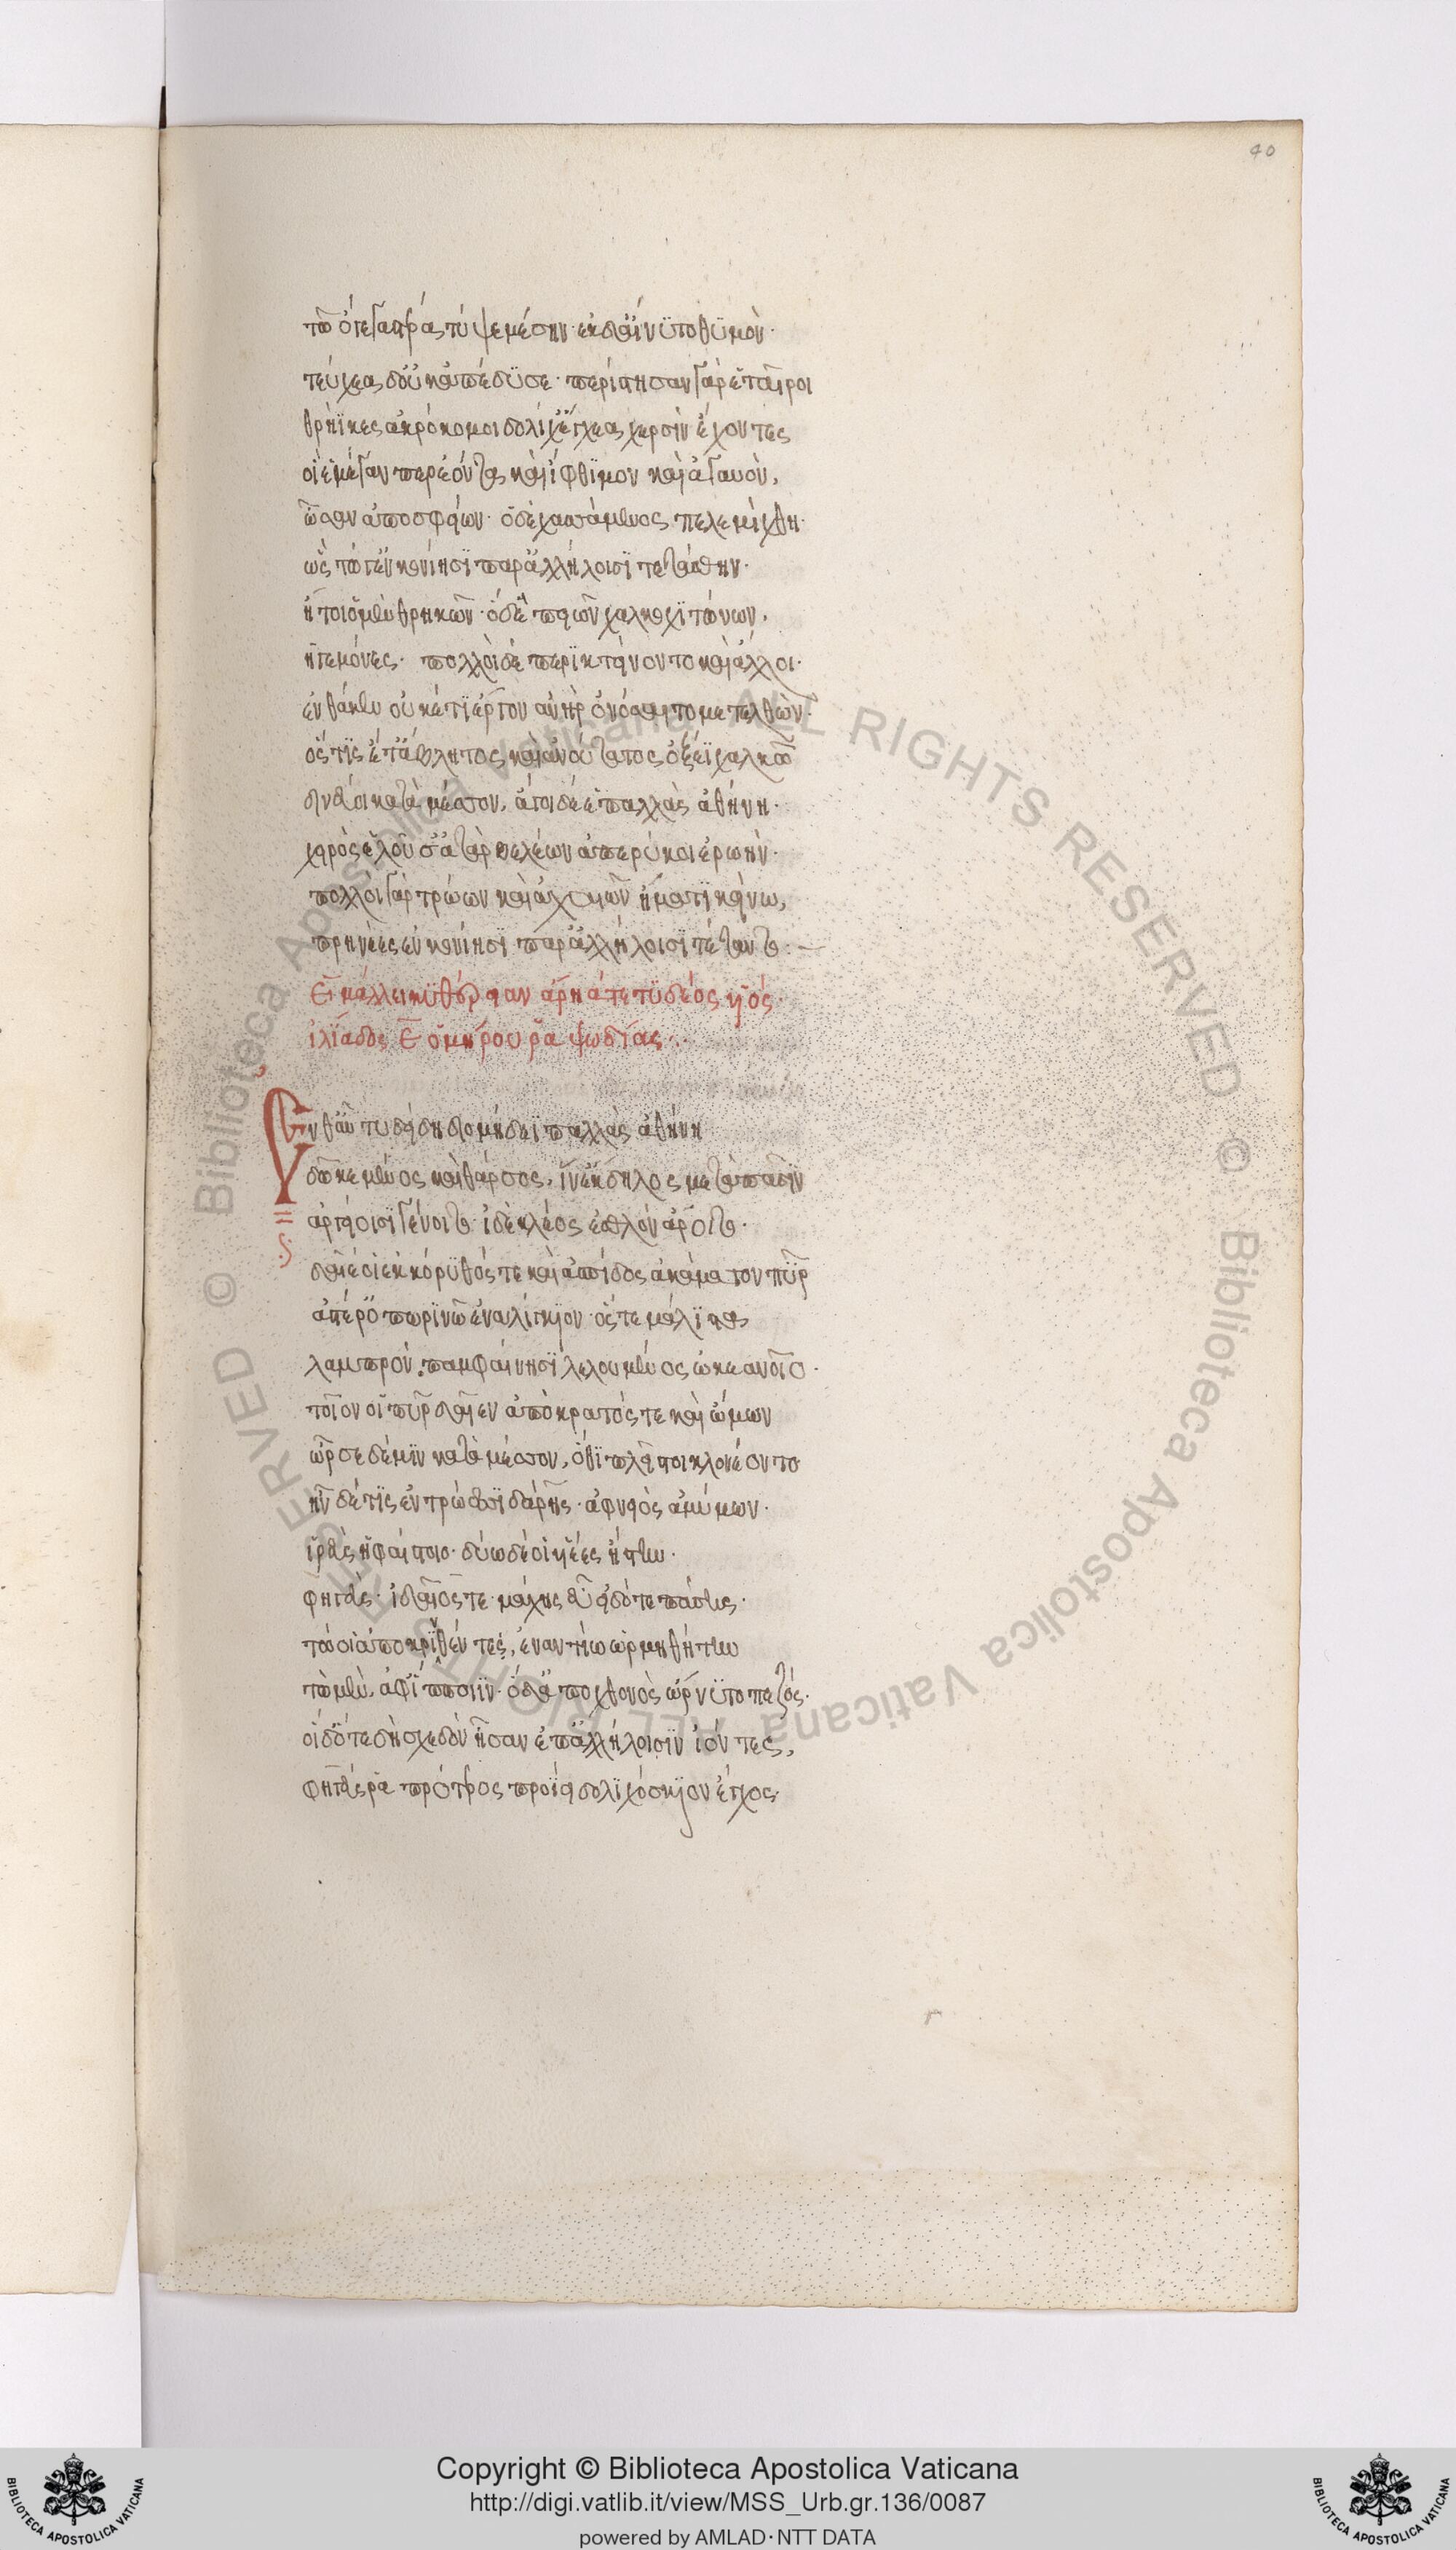 40
τῶ ὅτε γαστέρα τύψε μέσην· ἐκ δ' αἴνυτο θυμὸν·
τεύχεα δ' οὐκ ἀπέδυσε· περίστησαν γὰρ ἑταῖροι
θρήϊκες ἀκρόκομοι δολίχ' ἔγχεα χερσὶν ἔχοντες
οἵ ἑ μέγαν περ ἐόντα καὶ ἴφθιμον καὶ ἀγαυὸν,
ὦσαν ἀπὸ σφείων· ὁ δὲ χασσάμενος πελεμίχθη·
ὣς τώ γ' ἐν κονίησι παρ' ἀλλήλοισι τετάσθην·
ἤτοι ὃ μὲν θρηκῶν· ὁ δ' ἐπειῶν χαλκοχιτώνων,
ἡγεμόνες· πολλοὶ δὲ περικτείνοντο καὶ ἄλλοι·
ἔνθά κεν οὐκέτι ἔργον ἀνὴρ ὀνόσαιτο μετελθὼν·
ὅς τις ἔτ' ἄβλητος καὶ ἀνούτατος ὀξέϊ χαλκῶ
δινεύοι κατὰ μέσσον, ἄγοι δέ ἑ παλλὰς ἀθήνη·
χειρὸς ἑλοῦσ' ἀτὰρ βελέων ἀπερύκοι ἐρωὴν·
πολλοὶ γὰρ τρώων καὶ ἀχαιῶν ἤματι κείνω,
πρηνέες ἐν κονίησι παρ' ἀλλήλοισι τέταντο·
Εἶ βάλλει κυθέρειαν ἄρηά τε τυδέος υἱός
ἰλιάδος Ε ὁμήρου ῥαψωδίας·
Ἔνθ' αὖ τυδείδη διομήδεϊ παλλὰς ἀθήνη
δῶκε μένος καὶ θάρσος, ἵν' ἔκδηλος μετὰ πᾶσιν
ἀργείοισι γένοιτο ἰδὲ κλέος ἐσθλὸν ἄροιτο·
δαῖέ οἱ ἐκ κόρυθός τε καὶ ἀσπίδος ἀκάματον πῦρ
ἀστέρ' ὀπωρινῶ ἐναλίγκιον· ὅς τε μάλιστα
λαμπρὸν παμφαίνησι λελουμένος ὠκεανοῖο·
τοῖόν οἱ πῦρ δαῖεν ἀπὸ κρατός τε καὶ ὤμων
ὦρσε δέ μιν κατὰ μέσσον, ὅθι πλεῖστοι κλονέοντο
ἦν δέ τις ἐν τρώεσσι δάρης· ἀφνειὸς ἀμύμων·
ἱρεὺς ἡφαίστοιο· δύω δέ οἱ υἱέες ἤστην·
φηγεύς· ἰδαῖός τε· μάχης εὖ εἰδότε πάσης·
τώ οἱ ἀποκρινθέντες, ἐναντίω ὡρμηθήτην
τὼ μὲν, ἀφ' ἵπποιϊν· ὁ δ' ἀπὸ χθονὸς ὤρνυτο πεζός·
οἱ δ' ὅτε δὴ σχεδὸν ἦσαν ἐπ' ἀλλήλοισιν ἰόντες,
φηγεύς ῥα πρότερος προΐει δολιχόσκιον ἔγχος·
© Biblioteca Apostolica Vaticana ALL RIGHTS RESERVED © Biblioteca Apostolica Vaticana ALL RIGHTS RESERVED
Copyright © Biblioteca Apostolica Vaticana
http://digi.vatlib.it/view/MSS_Urb.gr.136/0087
powered by AMLAD·NTT DATA
BIBLIOTECA APOSTOLICA VATICANA
BIBLIOTECA APOSTOLICA VATICANA